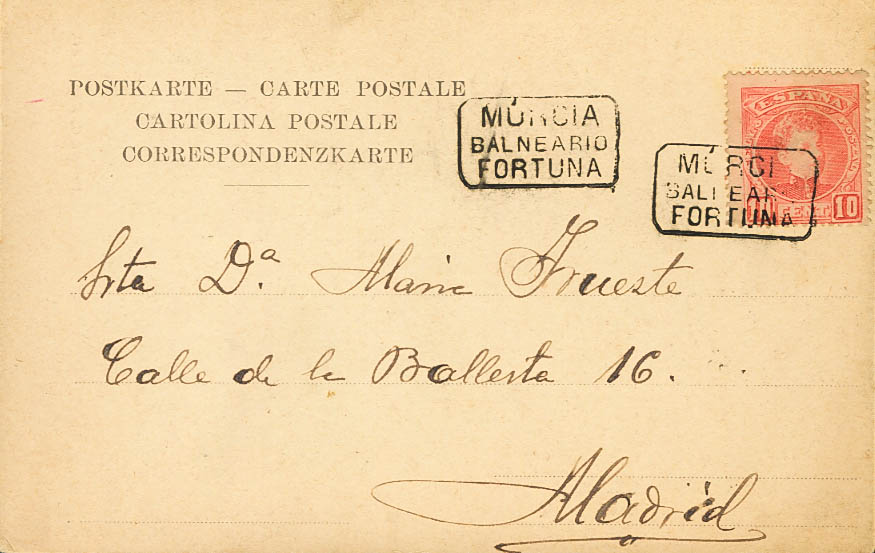 POSTKARTE — CARTE POSTALE
CARTOLINA POSTALE
CORRESPONDENZKARTE
MURCIA
BALNEARIO
FORTUNA
MURCI
BALNEAR
FORTUNA
ESPAÑA
10
Srta D.ª Maria
Calle de la Ballesta 16.
Madrid